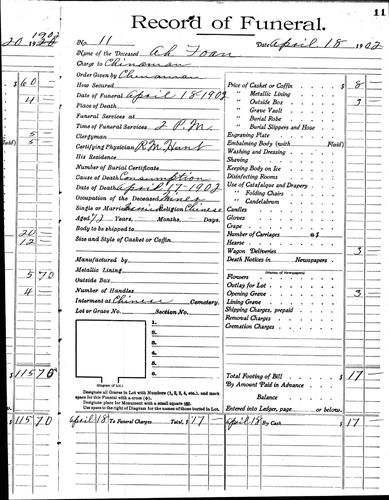 11
Record of Funeral.
No. 11 Date April 18 1902
Name of the Deceased Ah Foan
Charge to Chinaman
Order Given by Chinaman
How Secured
Date of Funeral April 18 1902
Place of Death
Funeral Services at
Time of Funeral Services 2 P.M.
Clergyman
Certifying Physician R M Hunt
His Residence
Number of Burial Certificate
Cause of Death Consumption
Date of Death April 17 1902
Occupation of the Deceased Miner
Single or Married Religion Chinese
Aged 72 Years, Months, Days.
Body to be shipped to
Size and Style of Casket or Coffin
Manufactured by
Metallic Lining
Outside Box
Number of Handles
Interment at Chinese Cemetery.
Lot or Grave No. Section No.
1.
2.
3.
4.
5.
6.
(Diagram of Lot.)
Designate all Graves in Lot with Numbers (1, 2, 3, 4, etc.), and mark
space for this Funeral with a cross
Designate place for Monument with a small square
Use space to the right of Diagram for the names of those buried in Lot.
April 18 To Funeral Charges Total, $ 17 —
Price of Casket or Coffin $ 8
" Metallic Lining
" Outside Box 3
" Grave Vault
" Burial Robe
" Burial Slippers and Hose
Engraving Plate
Embalming Body (with Fluid)
Washing and Dressing
Shaving
Keeping Body on Ice
Disinfecting Rooms
Use of Catafalque and Drapery
" Folding Chairs
" Candelabrum
Candles
Gloves
Crape
Number of Carriages @ $
Hearse
Wagon Deliveries 3
Death Notices in Newspapers
(Names of Newspapers)
Flowers
Outlay for Lot
Opening Grave 3
Lining Grave
Shipping Charges, prepaid
Removal Charges
Cremation Charges
Total Footing of Bill $ 17
By Amount Paid in Advance
Balance
Entered into Ledger, page or below.
April 18 By Cash $ 17
20 1902
$ 60
4
Fluid) 5
5
20
12
5 70
4
$ 115 70
$ 115 70